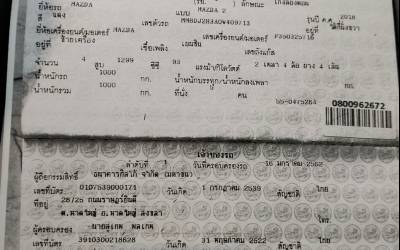 ยี่ห้อรถ MAZDA แบบ MAZDA 2 ลักษณะ เก๋งสองตอน
สี แดง เลขตัวรถ MM8DJ2B3A0W409713 รุ่นปี ค.ศ. 2018
ยี่ห้อเครื่องยนต์ MAZDA เลขเครื่องยนต์ P350325716
อยู่ที่ เชื้อเพลิง เบนซิน เลขถังแก๊ส
จำนวน 4 สูบ 1299 ซีซี 93 แรงม้า/กิโลวัตต์ 2 เพลา 4 ล้อ ยาง 4 เส้น
น้ำหนักรถ 1000 กก. น้ำหนักบรรทุก/น้ำหนักลงเพลา กก.
น้ำหนักรวม 1000 กก. ที่นั่ง คน
55-0475264
0800962672
เจ้าของรถ
ลำดับที่ 1 วันที่ครอบครองรถ 16 มกราคม 2562
ผู้ถือกรรมสิทธิ์ ธนาคารทิสโก้ จำกัด (มหาชน)
เลขที่บัตร 0107539000171 วันเกิด 1 กรกฎาคม 2539 สัญชาติ ไทย
ที่อยู่ 28/25 ถนนราษฎร์ยินดี
ต.หาดใหญ่ อ.หาดใหญ่ สงขลา
ผู้ครอบครอง
เลขที่บัตร 3910300218628 วันเกิด 31 พฤษภาคม 2522 สัญชาติ ไทย